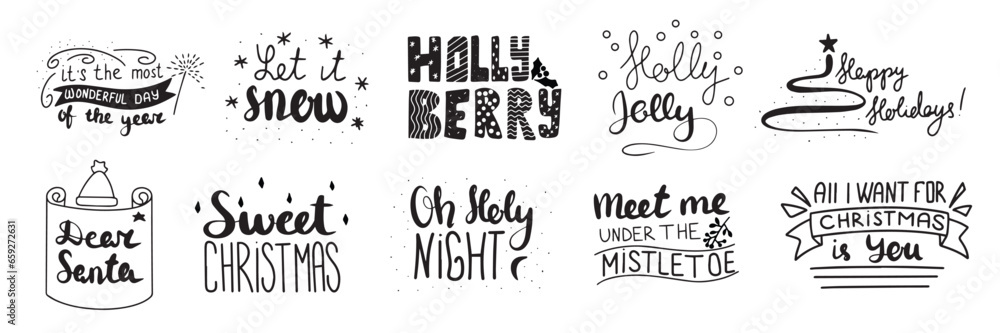 it's the most
WONDERFUL DAY
of the year
Let it
snow
HOLLY
BERRY
Holly
Jolly
Happy
Holidays!
Dear
Santa
Sweet
CHRISTMAS
Oh Holy
NIGHT
Meet me
UNDER THE
MISTLETOE
All I WANT FOR
CHRISTMAS
is You
659272631
Adobe Stock